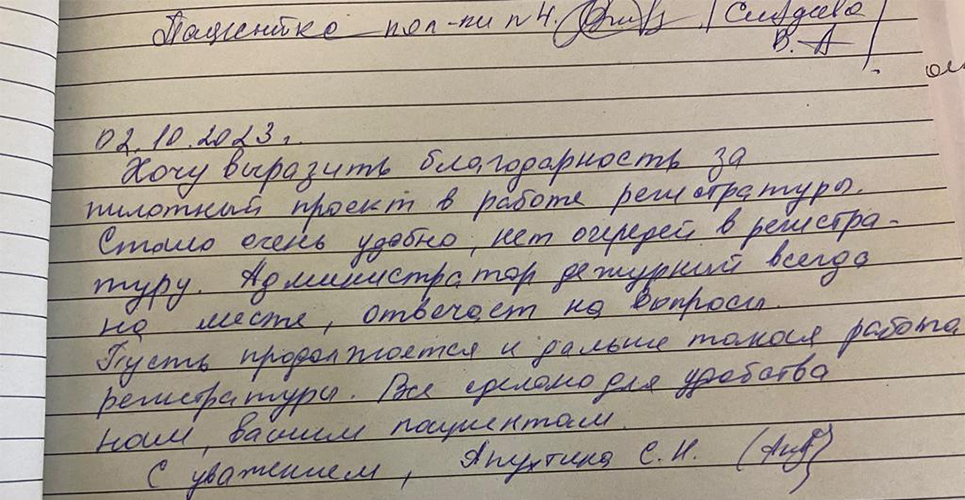 Пациентка пол-ки п 4.
В. А
02.10.2023 г.
Хочу выразить благодарность за
пилотный проект в работе регистратуры.
Стало очень удобно, нет очередей в регистра-
туру. Администратор дежурный всегда
на месте, отвечает на вопросы.
Пусть продолжается и дальше такая работа
регистратуры. Все сделано для удобства
нам, вашим пациентам.
С уважением, Апухтина С. Н.